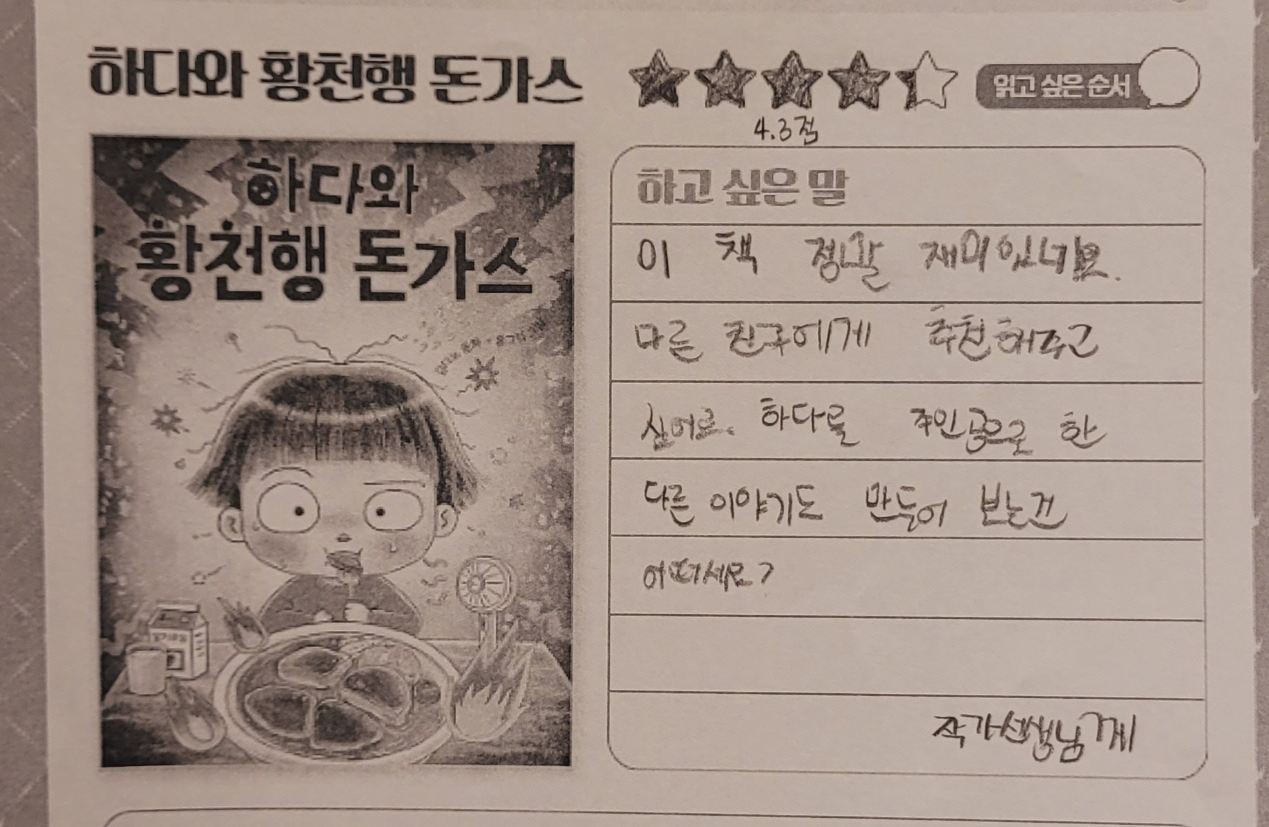 하다와 황천행 돈가스
읽고 싶은 순서
4.3점
하다와
황천행 돈가스
하고 싶은 말
이 책 정말 재미있네요.
다른 친구에게 추천해주고
싶어요. 하다를 주인공으로 한
다른 이야기도 만들어 보는건
어떠세요?
작가선생님께